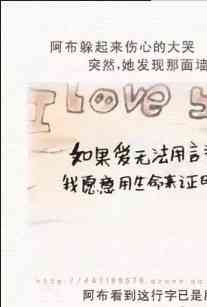 阿布躲起来伤心的大哭
突然,她发现那面墙
I Love
如果爱无法用言
我愿意用生命来证
阿布看到这行字已是